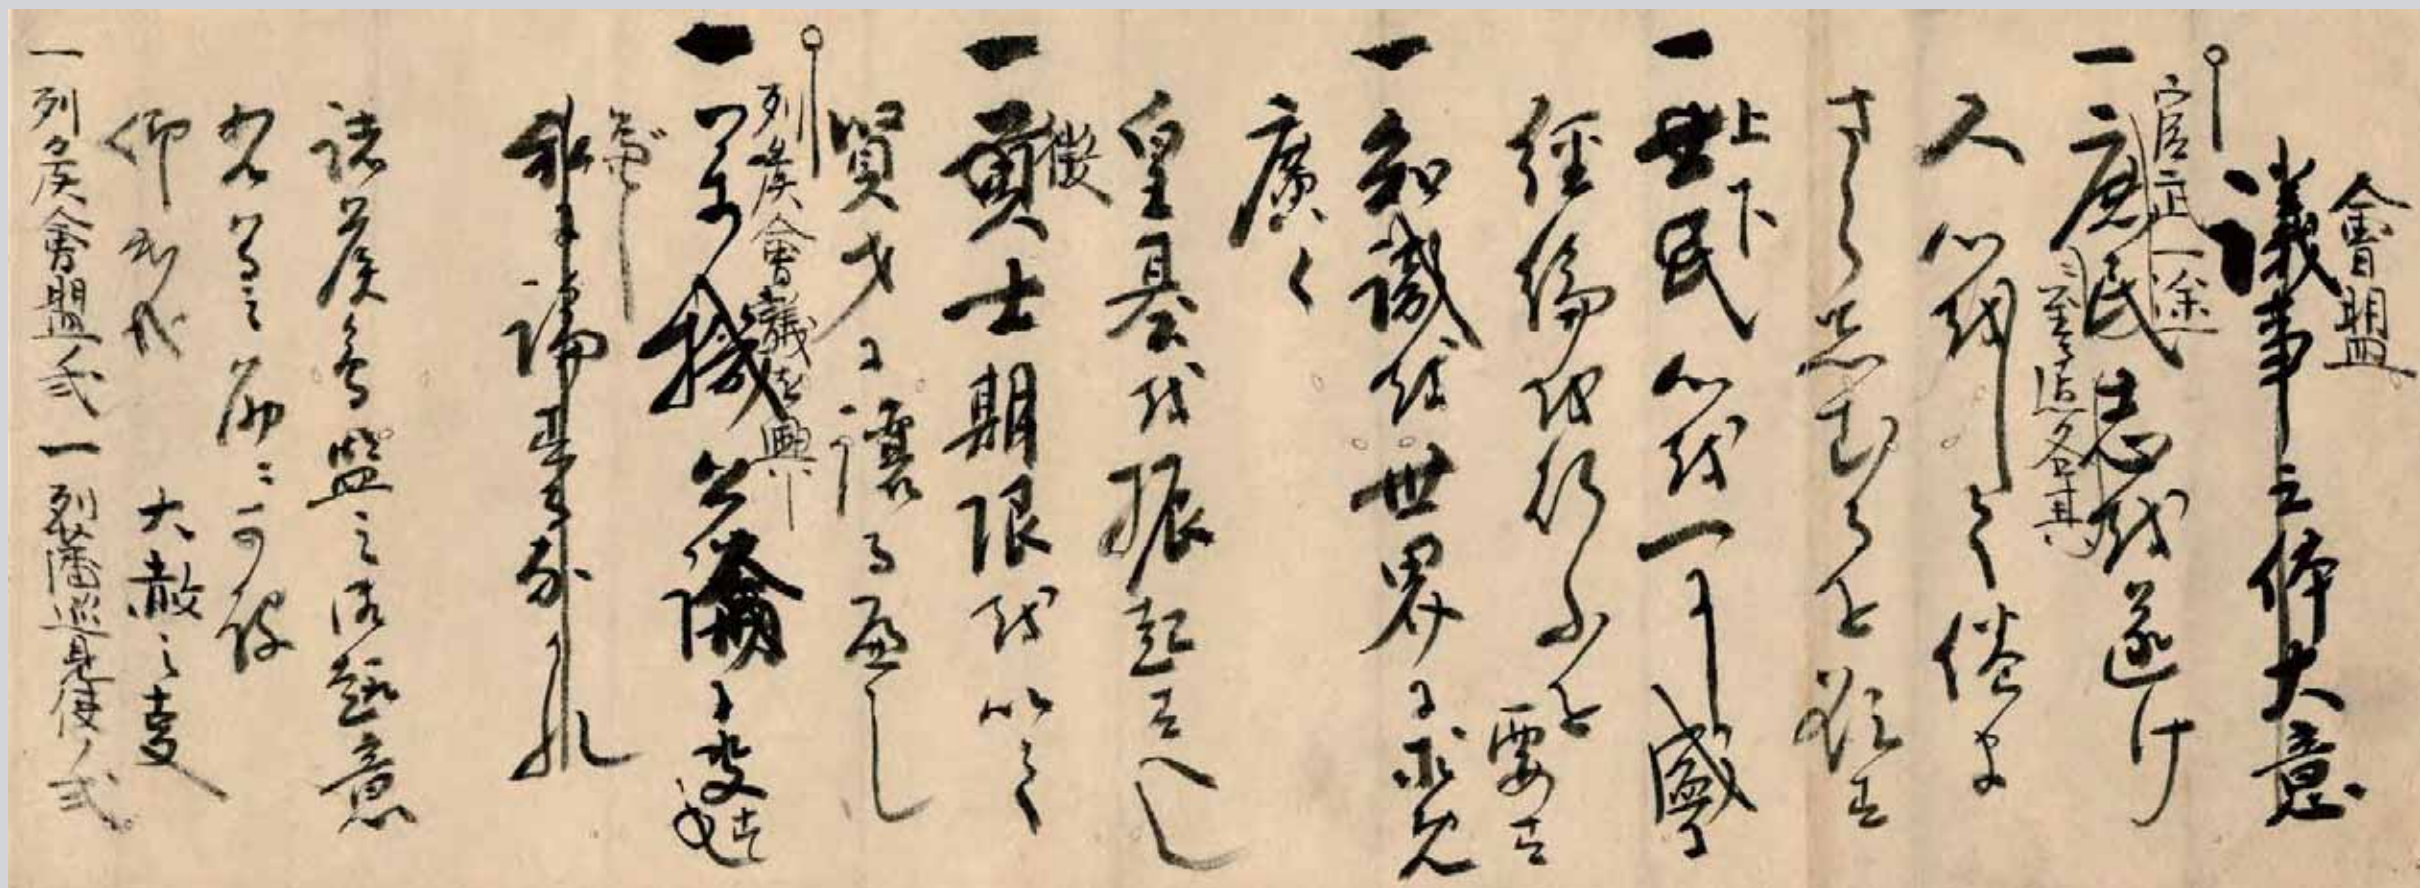 會盟
議事之体大意
官武一途
一庶民志を遂け
ニ至る迄各其
人心をして倦ま
さらしむるを欲す
上下
一士民心を一に盛に
経綸を行ふを要す
一知識を世界に求め
廣く
皇基を振起すへし
徴
一貢士期限を以て
賢才に譲るへし
列侯會議を興し
一万機公論に決し
私に論するなかれ
諸侯會盟之御趣意
右等之筋ニ可被
仰出哉 大赦之事
一列侯會盟式 一列藩巡見使ノ式